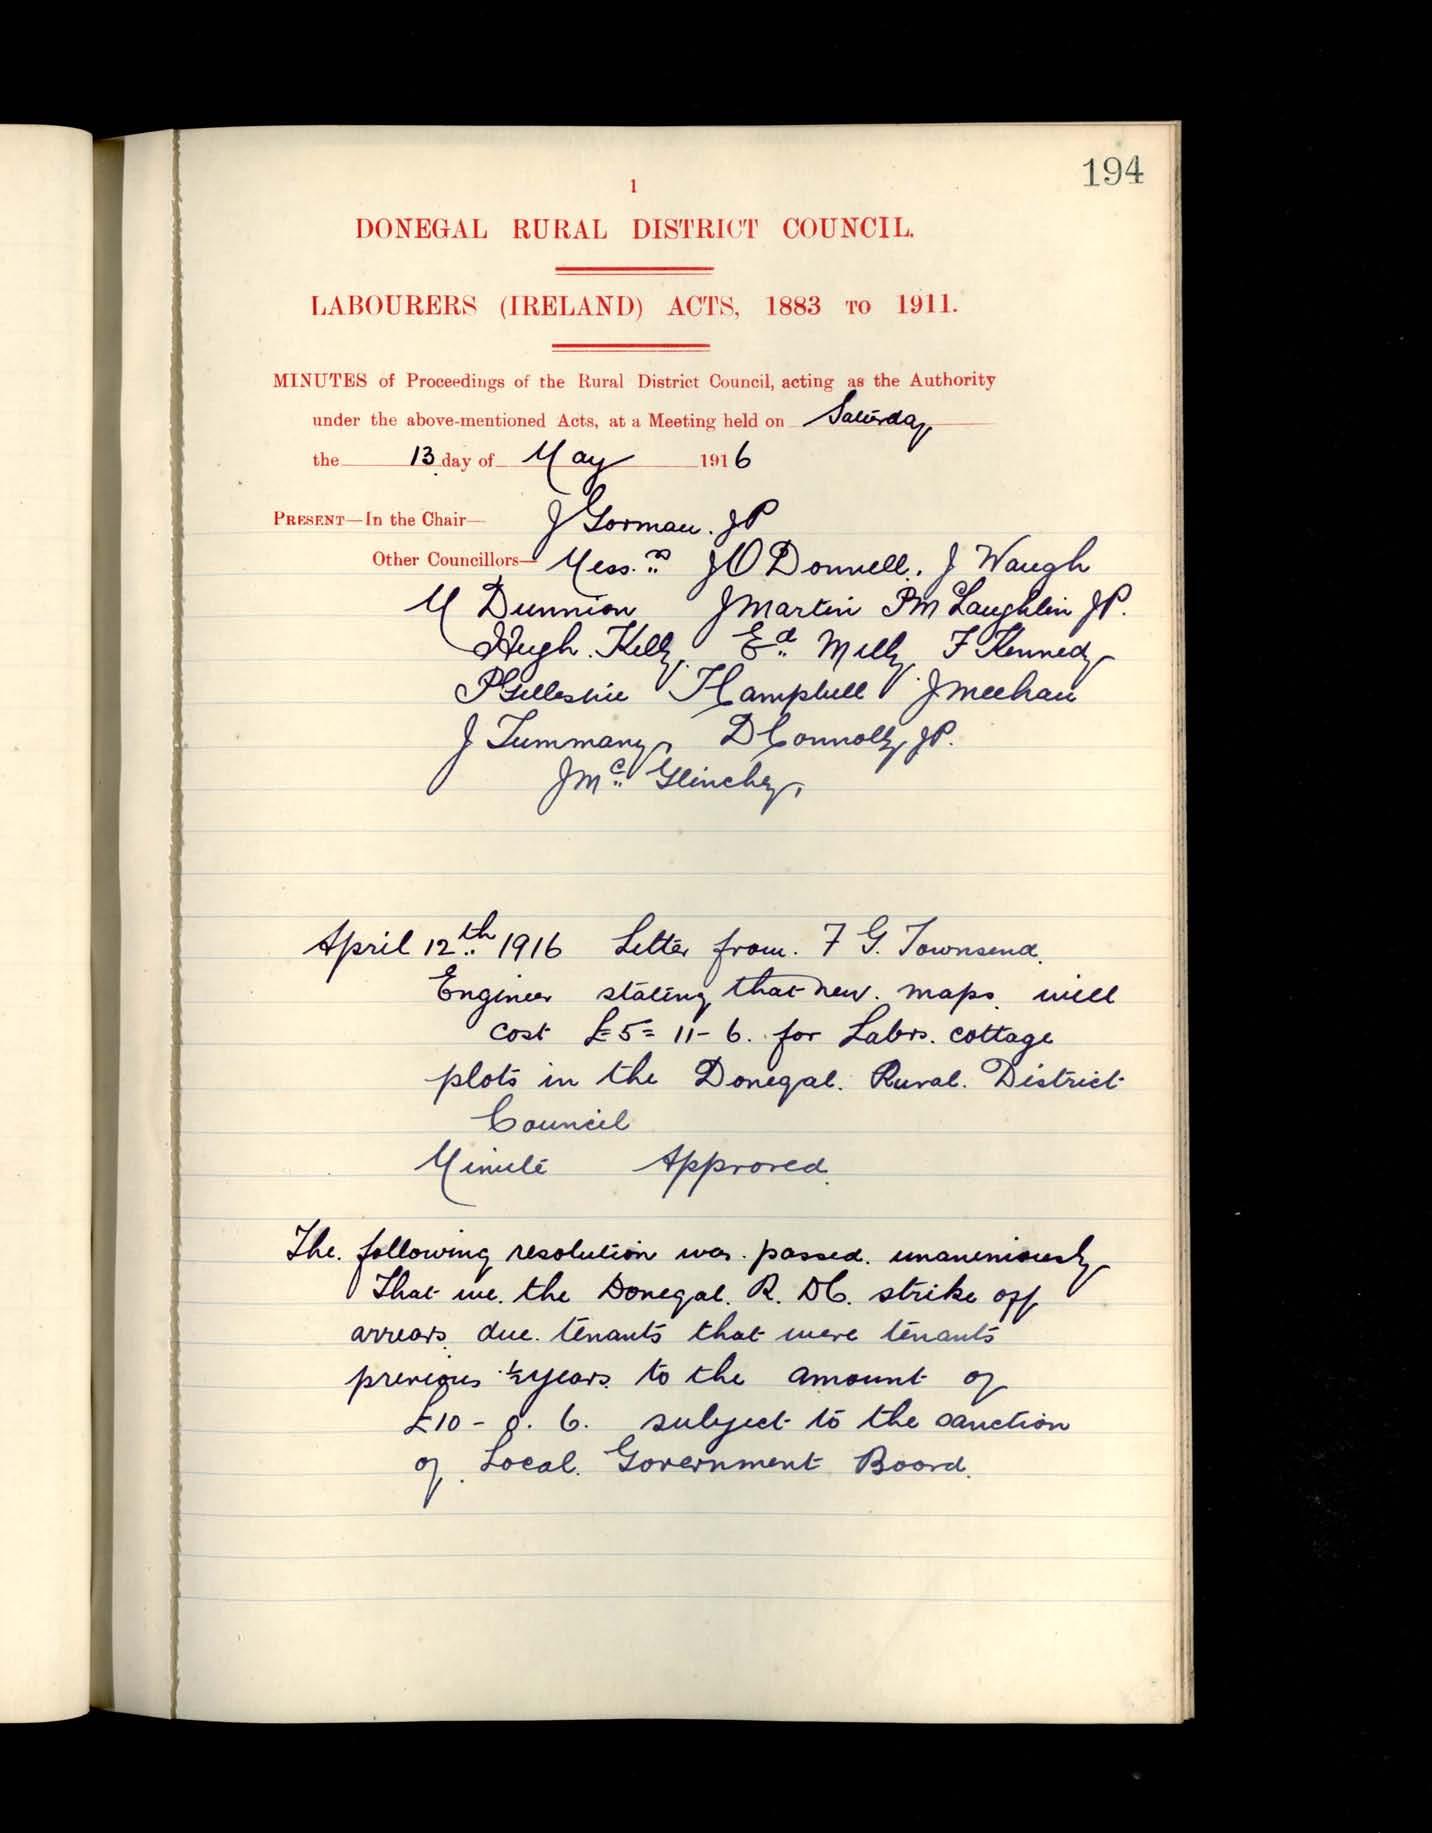 194
1
DONEGAL RURAL DISTRICT COUNCIL.
LABOURERS (IRELAND) ACTS, 1883 TO 1911.
MINUTES of Proceedings of the Rural District Council, acting as the Authority
under the above-mentioned Acts, at a Meeting held on Saturday
the 13 day of May 1916
PRESENT—In the Chair— J Gorman. JP
Other Councillors— Mess.rs J O Donnell. J Waugh
M Dunnion J Martin P McLaughlin JP.
Hugh. Kelly. Ed Melly F Kennedy
P Gillespie T Campbell J Meehan
J Tummany, D Connolly JP.
J Mc Glinchey,
April 12th 1916 Letter from. F G. Townsend.
Engineer stating that new. maps. will
cost £5=11-6. for Labrs. cottage
plots in the Donegal. Rural. District
Council
Minute Approved.
The. following resolution was. passed. unanimously
That we. the Donegal. R. DC. strike off
arrears. due. tenants that were tenants
previous ½ years. to the amount of
£10-0.6. subject to the sanction
of Local. Government Board.